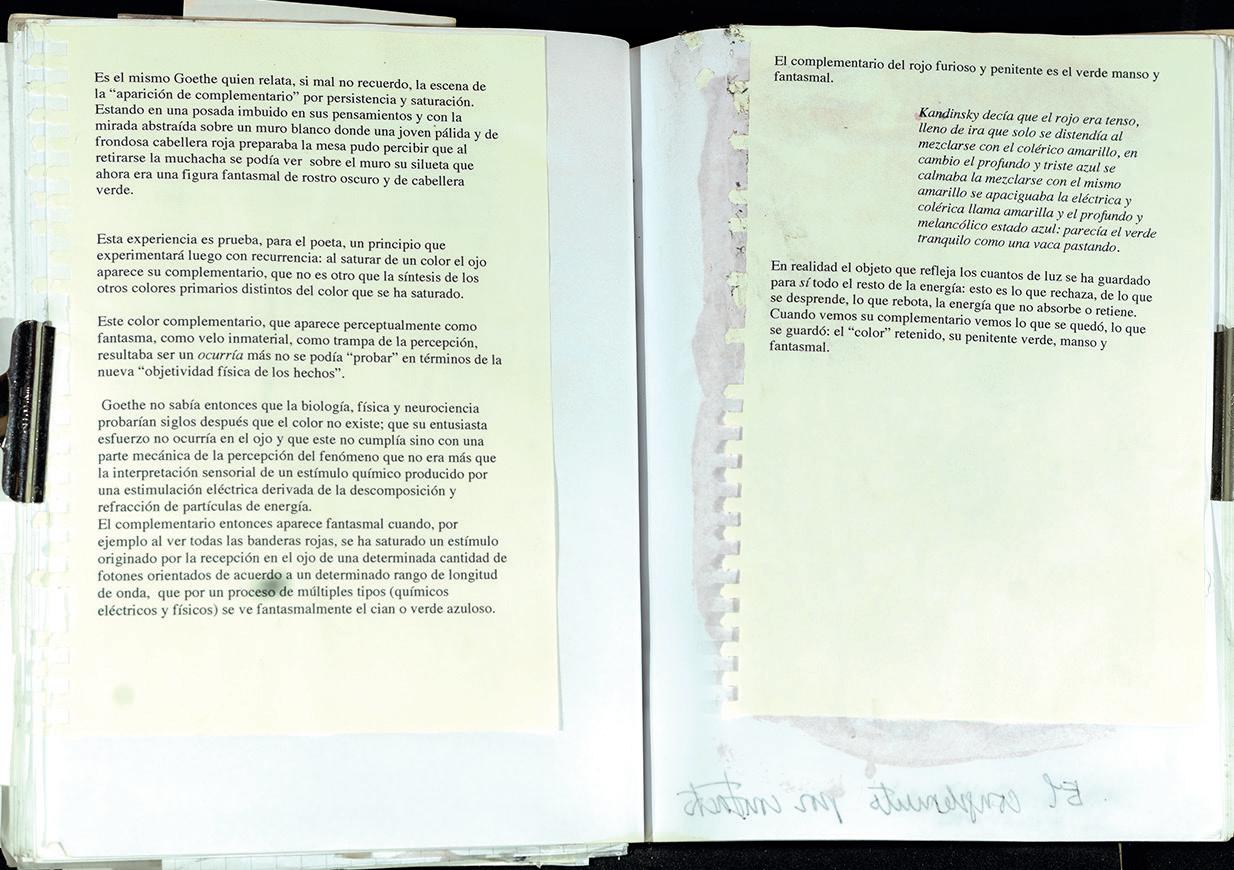 Es el mismo Goethe quien relata, si mal no recuerdo, la escena de
la “aparición de complementario” por persistencia y saturación.
Estando en una posada imbuido en sus pensamientos y con la
mirada abstraída sobre un muro blanco donde una joven pálida y de
frondosa cabellera roja preparaba la mesa pudo percibir que al
retirarse la muchacha se podía ver sobre el muro su silueta que
ahora era una figura fantasmal de rostro oscuro y de cabellera
verde.
Esta experiencia es prueba, para el poeta, un principio que
experimentará luego con recurrencia: al saturar de un color el ojo
aparece su complementario, que no es otro que la síntesis de los
otros colores primarios distintos del color que se ha saturado.
Este color complementario, que aparece perceptualmente como
fantasma, como velo inmaterial, como trampa de la percepción,
resultaba ser un ocurría más no se podía “probar” en términos de la
nueva “objetividad física de los hechos”.
Goethe no sabía entonces que la biología, física y neurociencia
probarían siglos después que el color no existe; que su entusiasta
esfuerzo no ocurría en el ojo y que este no cumplía sino con una
parte mecánica de la percepción del fenómeno que no era más que
la interpretación sensorial de un estímulo químico producido por
una estimulación eléctrica derivada de la descomposición y
refracción de partículas de energía.
El complementario entonces aparece fantasmal cuando, por
ejemplo al ver todas las banderas rojas, se ha saturado un estímulo
originado por la recepción en el ojo de una determinada cantidad de
fotones orientados de acuerdo a un determinado rango de longitud
de onda, que por un proceso de múltiples tipos (químicos
eléctricos y físicos) se ve fantasmalmente el cian o verde azuloso.
El complementario del rojo furioso y penitente es el verde manso y
fantasmal.
Kandinsky decía que el rojo era tenso,
lleno de ira que solo se distendía al
mezclarse con el colérico amarillo, en
cambio el profundo y triste azul se
calmaba la mezclarse con el mismo
amarillo se apaciguaba la eléctrica y
colérica llama amarilla y el profundo y
melancólico estado azul: parecía el verde
tranquilo como una vaca pastando.
En realidad el objeto que refleja los cuantos de luz se ha guardado
para sí todo el resto de la energía: esto es lo que rechaza, de lo que
se desprende, lo que rebota, la energía que no absorbe o retiene.
Cuando vemos su complementario vemos lo que se quedó, lo que
se guardó: el “color” retenido, su penitente verde, manso y
fantasmal.
El por